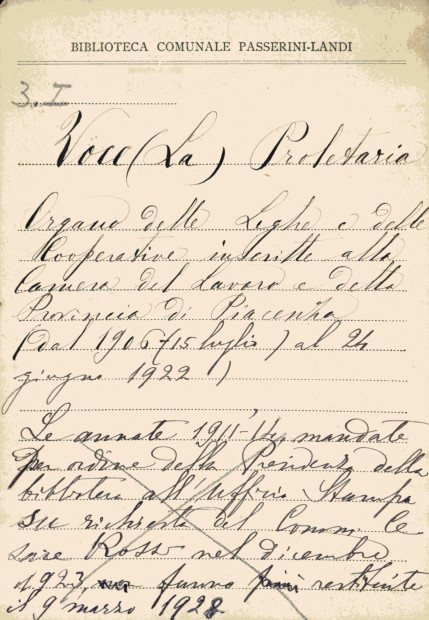 BIBLIOTECA COMUNALE PASSERINI-LANDI
3. I
Voce (La) Proletaria
Organo delle Leghe e delle
Cooperative inscritte alla
Camera del Lavoro e della
Provincia di Piacenza
(dal 1906 (15 luglio) al 24
giugno 1922)
Le annate 1911-14, mandate
per ordine della Presidenza della
biblioteca all'Ufficio Stampa
su richiesta del Comm Ce
sare Rossi nel dicembre
1923, furono restituite
il 9 marzo 1928.